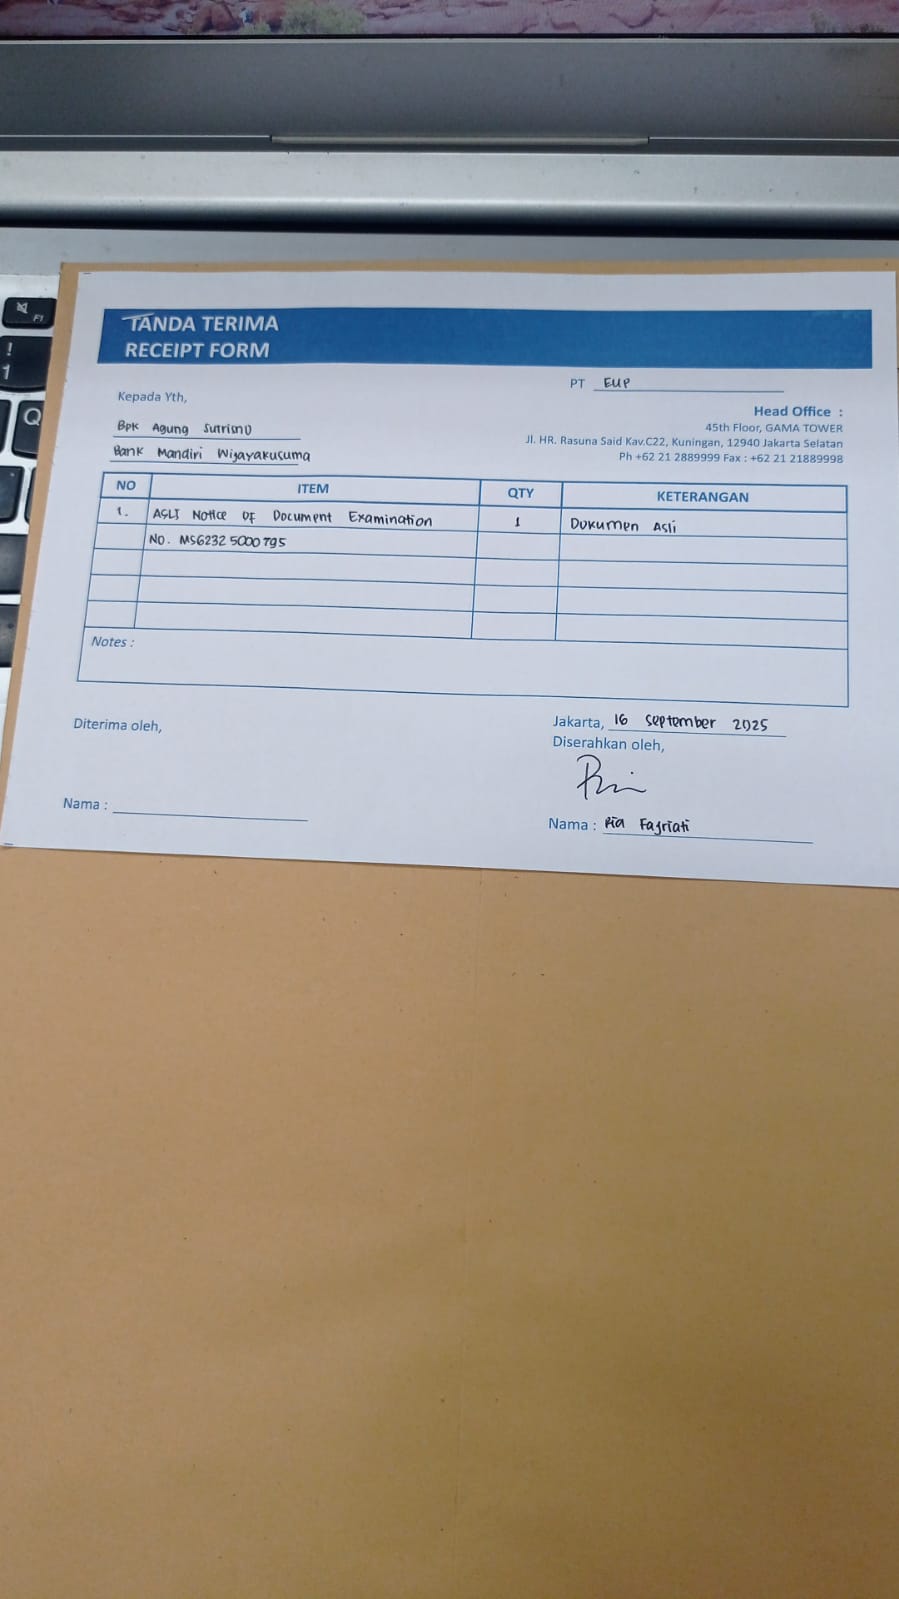 TANDA TERIMA
RECEIPT FORM
PT EUP
Kepada Yth,
Bpk Agung Sutrisno
Bank Mandiri Wijayakusuma
Head Office :
45th Floor, GAMA TOWER
Jl. HR. Rasuna Said Kav.C22, Kuningan, 12940 Jakarta Selatan
Ph +62 21 2889999 Fax : +62 21 21889998
NO ITEM QTY KETERANGAN
1. ASLI Notice OF Document Examination 1 Dokumen Asli
NO. MS62325000795
Notes :
Diterima oleh,
Nama :
Jakarta, 16 September 2025
Diserahkan oleh,
Nama : Ria Fajriati
F1
!
1
Q